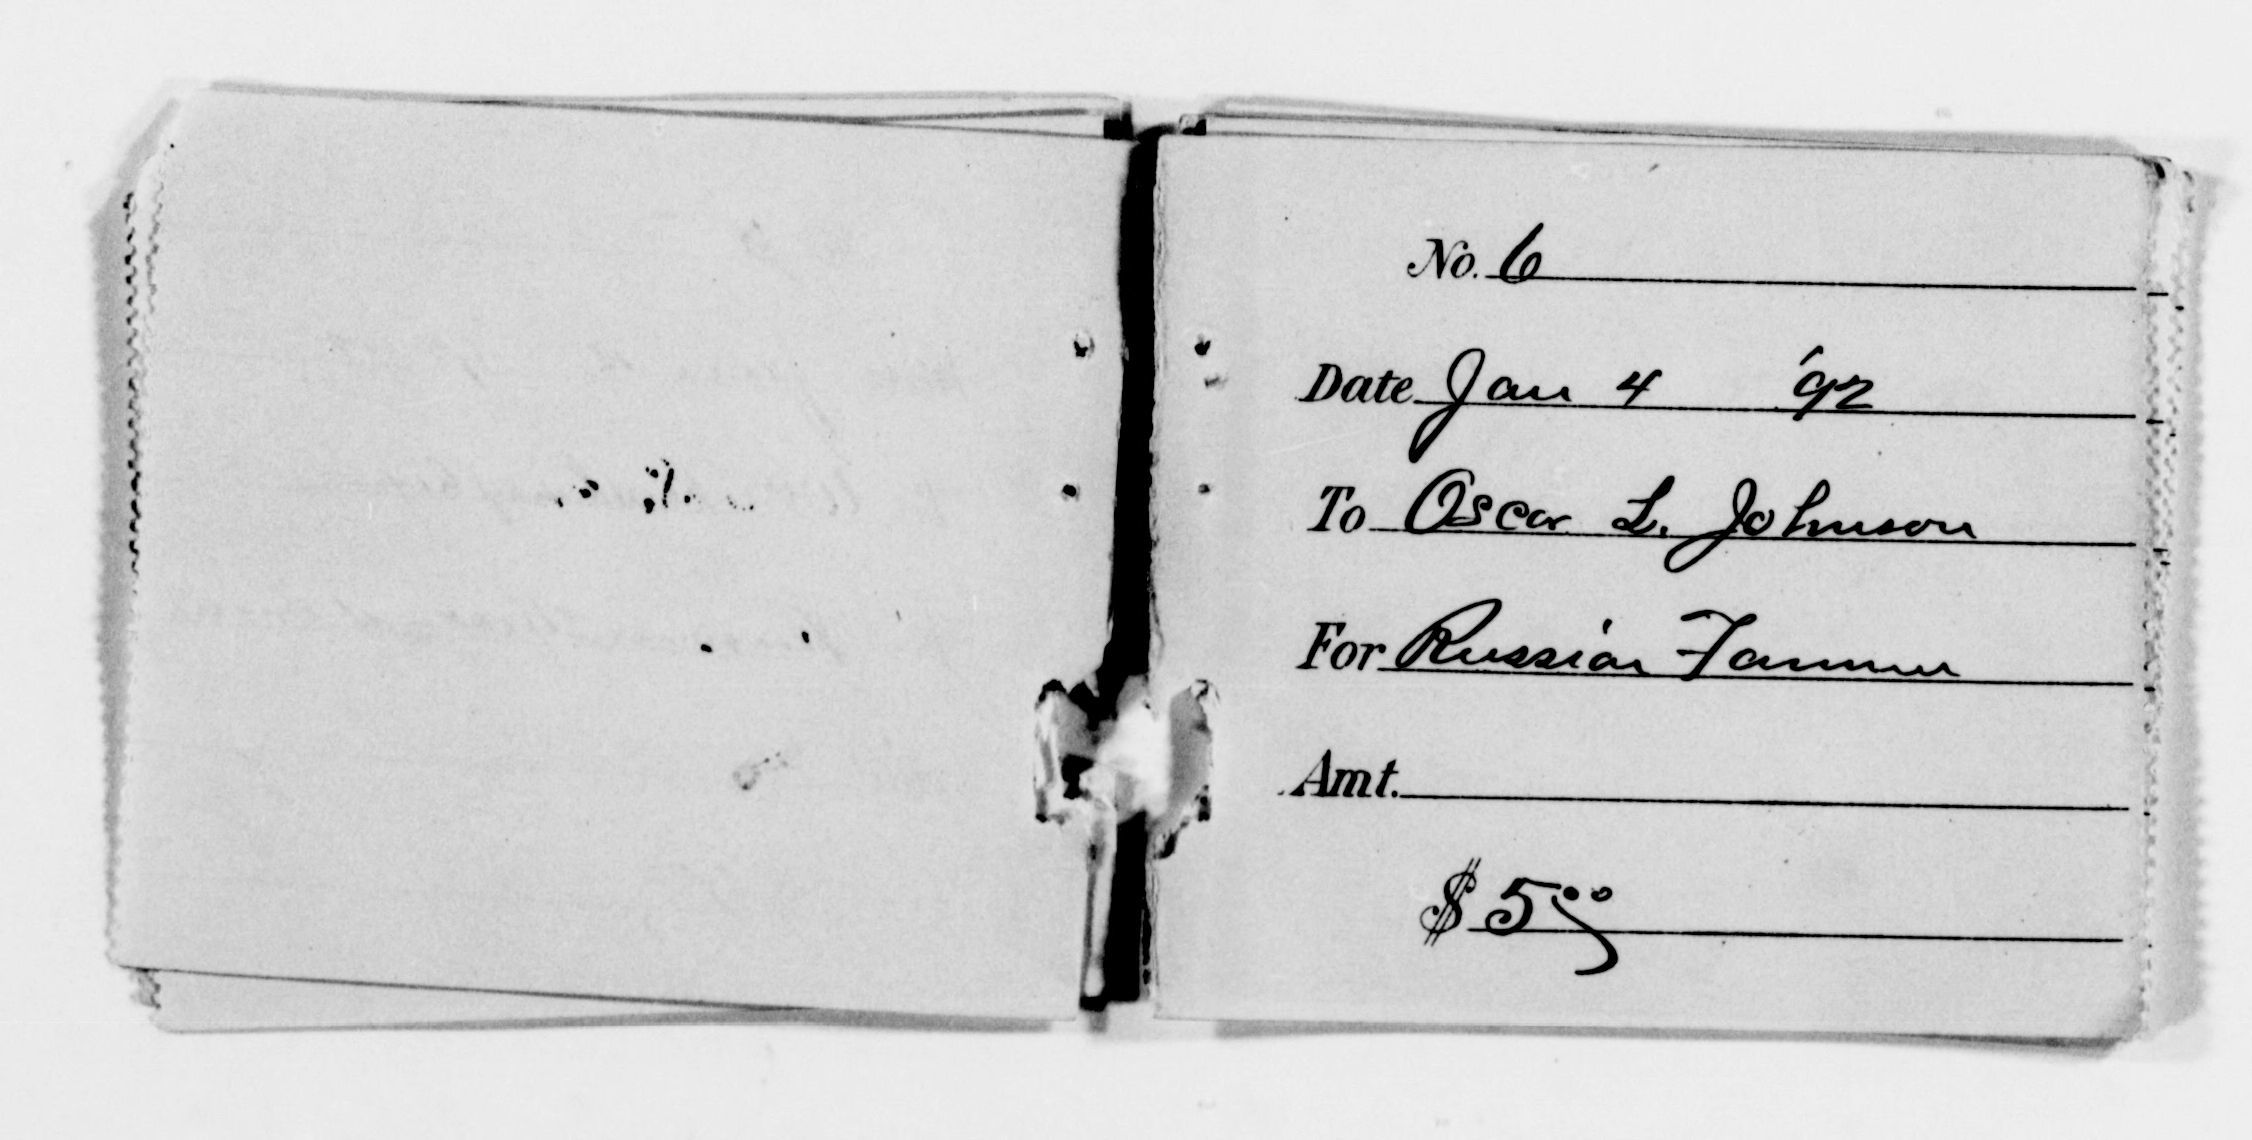 No. 6
Date Jan 4 '92
To Oscar L. Johnson
For Russian Famine
Amt.
$ 5.00